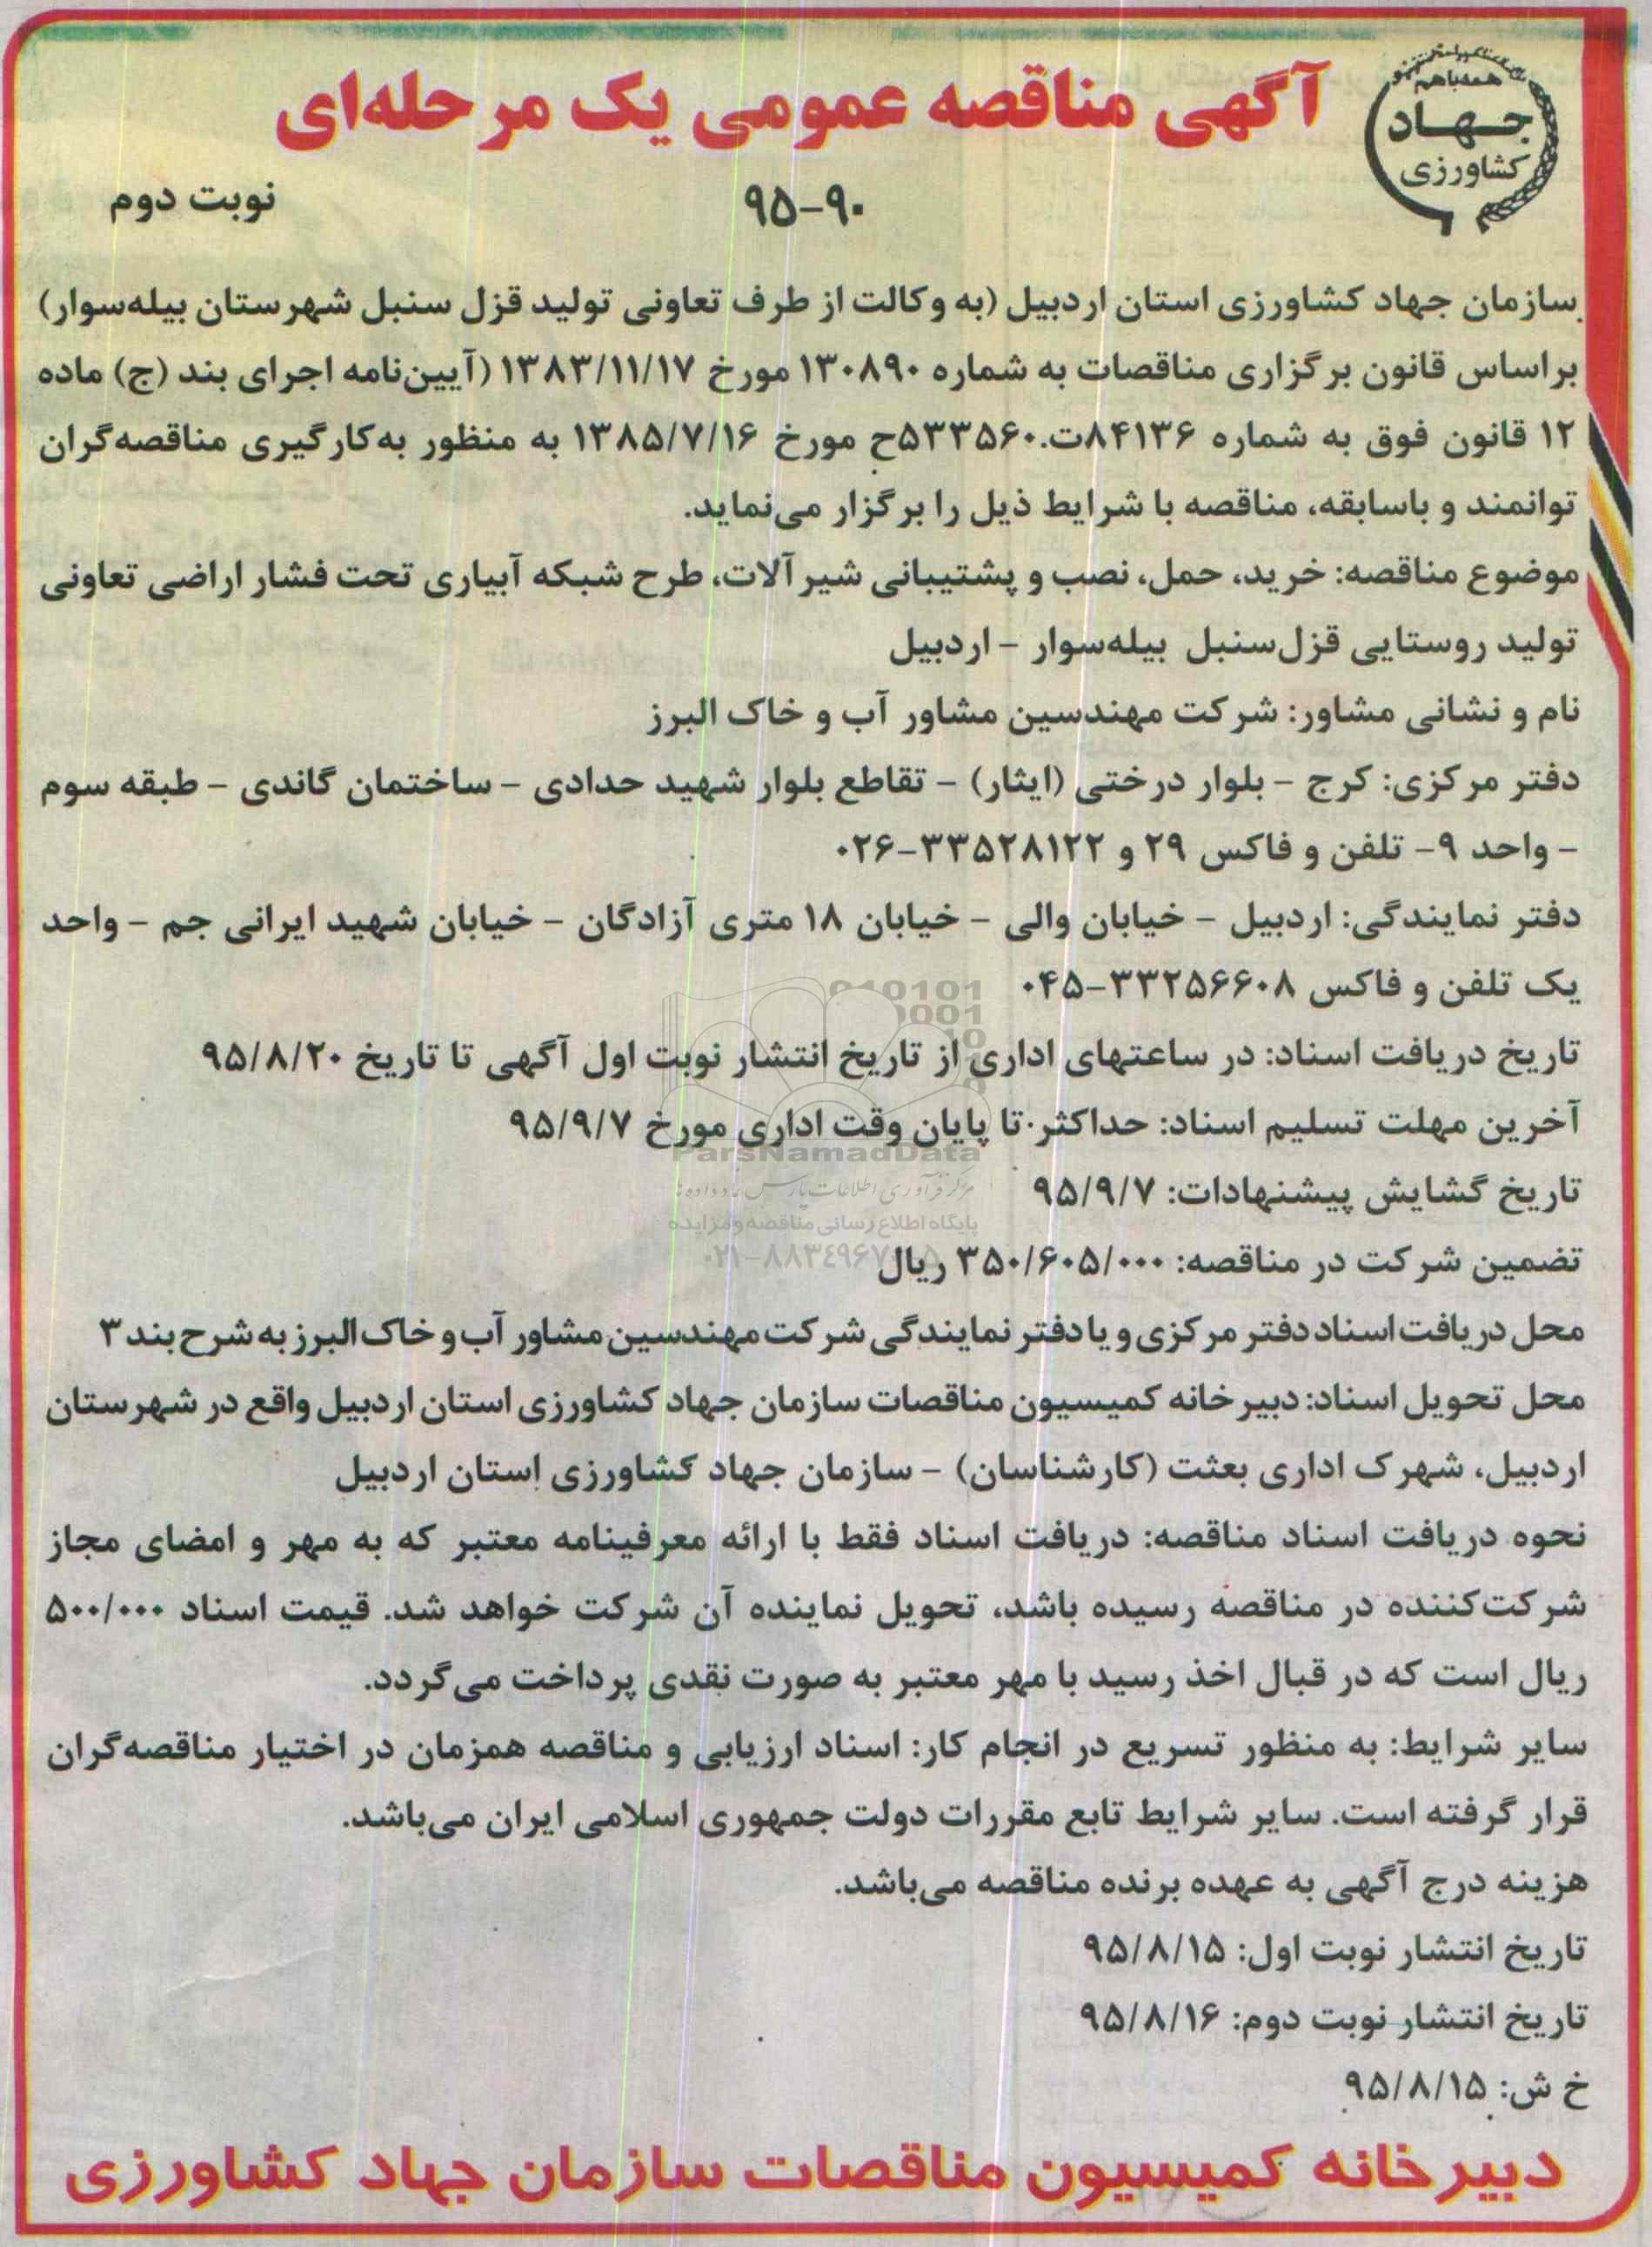 همه با هم
جهاد
کشاورزی
آگهی مناقصه عمومی یک مرحله‌ای
۹۵-۹۰
نوبت دوم
سازمان جهاد کشاورزی استان اردبیل (به وکالت از طرف تعاونی تولید قزل سنبل شهرستان بیله‌سوار)
براساس قانون برگزاری مناقصات به شماره ۱۳۰۸۹۰ مورخ ۱۳۸۳/۱۱/۱۷ (آیین‌نامه اجرای بند (ج) ماده
۱۲ قانون فوق به شماره ۸۴۱۳۶ت.۵۳۳۵۶۰ح مورخ ۱۳۸۵/۷/۱۶ به منظور به‌کارگیری مناقصه‌گران
توانمند و باسابقه، مناقصه با شرایط ذیل را برگزار می‌نماید.
موضوع مناقصه: خرید، حمل، نصب و پشتیبانی شیرآلات، طرح شبکه آبیاری تحت فشار اراضی تعاونی
تولید روستایی قزل‌سنبل بیله‌سوار - اردبیل
نام و نشانی مشاور: شرکت مهندسین مشاور آب و خاک البرز
دفتر مرکزی: کرج - بلوار درختی (ایثار) - تقاطع بلوار شهید حدادی - ساختمان گاندی - طبقه سوم
- واحد ۹- تلفن و فاکس ۲۹ و ۳۳۵۲۸۱۲۲-۰۲۶
دفتر نمایندگی: اردبیل - خیابان والی - خیابان ۱۸ متری آزادگان - خیابان شهید ایرانی جم - واحد
یک تلفن و فاکس ۳۳۲۵۶۶۰۸-۰۴۵
تاریخ دریافت اسناد: در ساعتهای اداری از تاریخ انتشار نوبت اول آگهی تا تاریخ ۹۵/۸/۲۰
آخرین مهلت تسلیم اسناد: حداکثر تا پایان وقت اداری مورخ ۹۵/۹/۷
ParsNamadData
تاریخ گشایش پیشنهادات: ۹۵/۹/۷
پایگاه اطلاع رسانی مناقصه و مزایده
تضمین شرکت در مناقصه: ۳۵۰/۶۰۵/۰۰۰ ریال
محل دریافت اسناد دفتر مرکزی و یا دفتر نمایندگی شرکت مهندسین مشاور آب و خاک البرز به شرح بند ۳
محل تحویل اسناد: دبیرخانه کمیسیون مناقصات سازمان جهاد کشاورزی استان اردبیل واقع در شهرستان
اردبیل، شهرک اداری بعثت (کارشناسان) - سازمان جهاد کشاورزی استان اردبیل
نحوه دریافت اسناد مناقصه: دریافت اسناد فقط با ارائه معرفینامه معتبر که به مهر و امضای مجاز
شرکت‌کننده در مناقصه رسیده باشد، تحویل نماینده آن شرکت خواهد شد. قیمت اسناد ۵۰۰/۰۰۰
ریال است که در قبال اخذ رسید با مهر معتبر به صورت نقدی پرداخت می‌گردد.
سایر شرایط: به منظور تسریع در انجام کار: اسناد ارزیابی و مناقصه همزمان در اختیار مناقصه‌گران
قرار گرفته است. سایر شرایط تابع مقررات دولت جمهوری اسلامی ایران می‌باشد.
هزینه درج آگهی به عهده برنده مناقصه می‌باشد.
تاریخ انتشار نوبت اول: ۹۵/۸/۱۵
تاریخ انتشار نوبت دوم: ۹۵/۸/۱۶
خ ش: ۹۵/۸/۱۵
دبیرخانه کمیسیون مناقصات سازمان جهاد کشاورزی